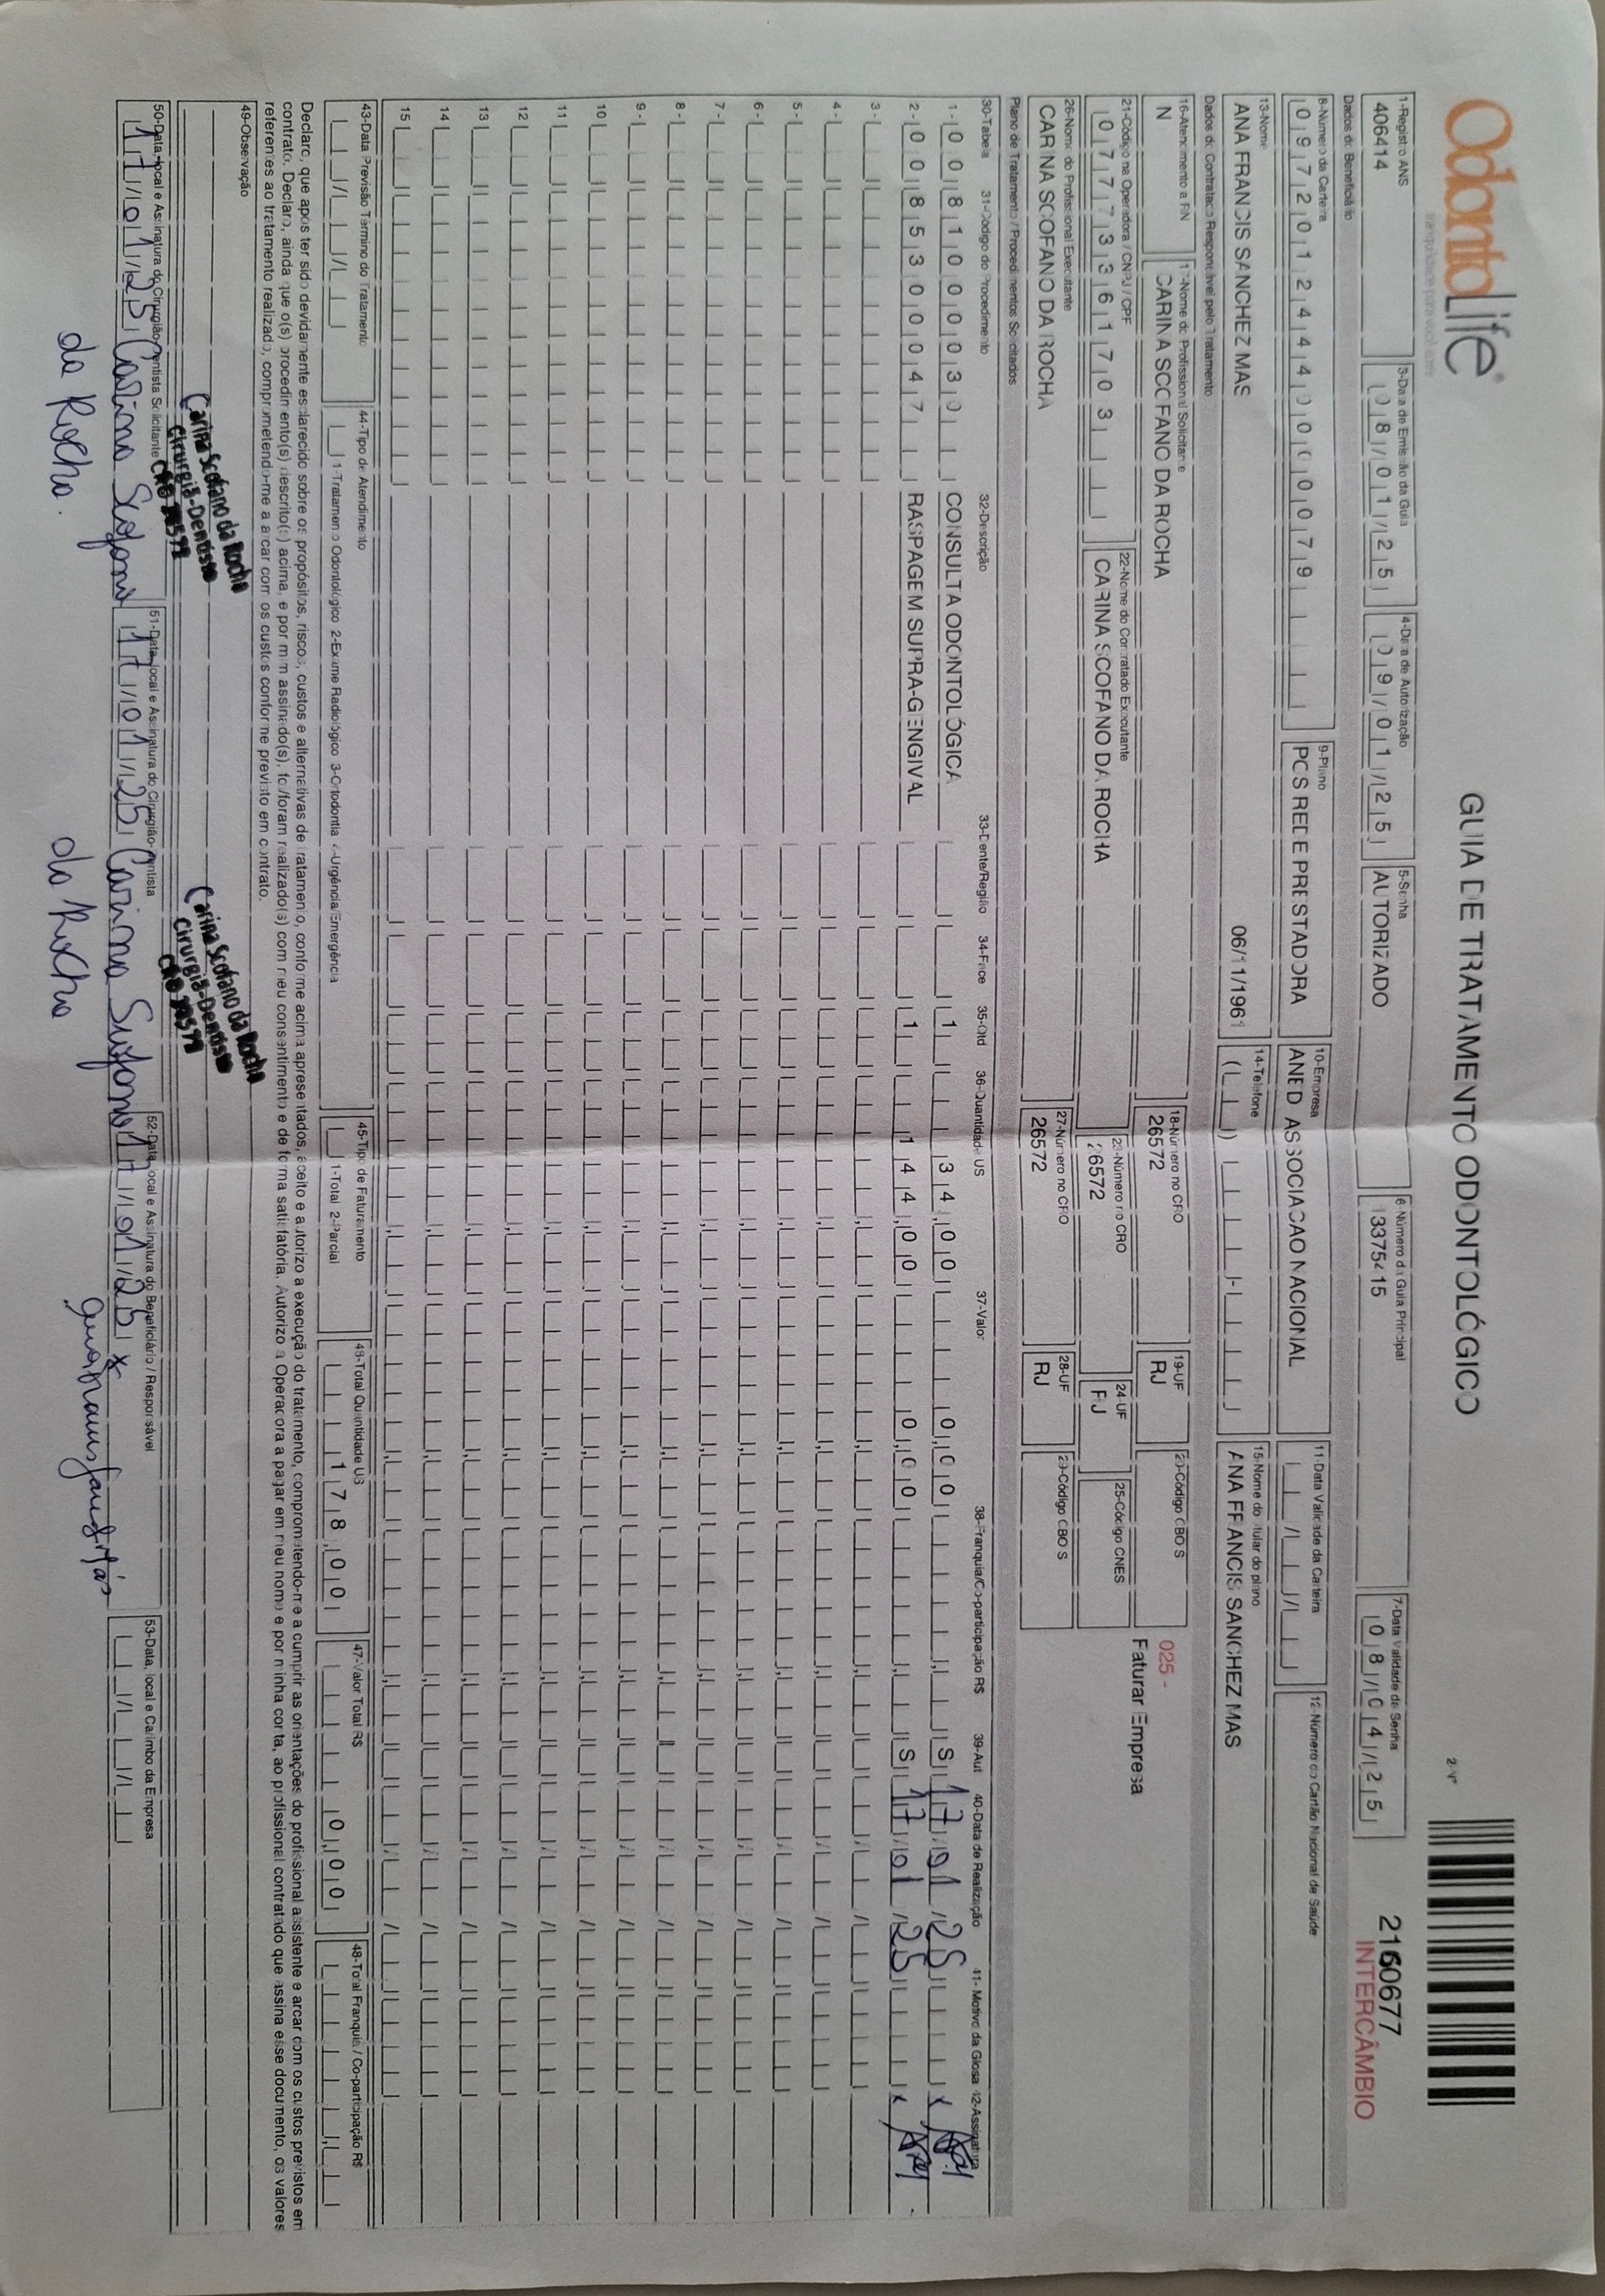 OdontoLife®
GUIA DE TRATAMENTO ODONTOLÓGICO
2160677
INTERCÂMBIO
1-Registro ANS
406414
3-Data de Emissão da Guia
08/01/25
4-Data de Autorização
09/01/25
5-Senha
AUTORIZADO
6-Número da Guia Principal
3375415
7-Data Validade da Senha
08/04/25
Dados do Beneficiário
8-Número da Carteira
09720124440000079
9-Plano
POS REDE PRESTADORA
10-Empresa
ANED ASSOCIACAO NACIONAL
11-Data Validade da Carteira
12-Número do Cartão Nacional de Saúde
13-Nome
ANA FRANCIS SANCHEZ MAS
06/11/1961
14-Telefone
15-Nome do titular do plano
ANA FRANCIS SANCHEZ MAS
Dados do Contratado Responsável pelo Tratamento
16-Atendimento a RN
N
17-Nome do Profissional Solicitante
CARINA SCOFANO DA ROCHA
18-Número no CRO
26572
19-UF
RJ
20-Código CBO S
025 -
Faturar Empresa
21-Código na Operadora / CNPJ / CPF
07773361703
22-Nome do Contratado Executante
CARINA SCOFANO DA ROCHA
23-Número no CRO
26572
24-UF
RJ
25-Código CNES
26-Nome do Profissional Executante
CARINA SCOFANO DA ROCHA
27-Número no CRO
26572
28-UF
RJ
29-Código CBO S
Plano de Tratamento / Procedimentos Solicitados
30-Tabela 31-Código do Procedimento 32-Descrição 33-Dente/Região 34-Face 35-Qtd 36-Quantidade US 37-Valor 38-Franquia/Co-participação R$ 39-Aut 40-Data de Realização 41- Motivo da Glosa 42-Assinatura
1- 00 81000030 CONSULTA ODONTOLÓGICA 1 34,00 0,00 S 17/01/25 x
2- 00 85300047 RASPAGEM SUPRA-GENGIVAL 1 144,00 0,00 S 17/01/25 x
3-
4-
5-
6-
7-
8-
9-
10
11
12
13
14
15
43-Data Previsão Término do Tratamento
44-Tipo de Atendimento
1-Tratamento Odontológico 2-Exame Radiológico 3-Ortodontia 4-Urgência/Emergência
45-Tipo de Faturamento
1-Total 2-Parcial
46-Total Quantidade US
178,00
47-Valor Total R$
0,00
48-Total Franquia / Co-participação R$
Declaro, que após ter sido devidamente esclarecido sobre os propósitos, riscos, custos e alternativas de tratamento, conforme acima apresentados, aceito e autorizo a execução do tratamento, comprometendo-me a cumprir as orientações do profissional assistente e arcar com os custos previstos em
contrato. Declaro, ainda que o(s) procedimento(s) descrito(s) acima, e por mim assinado(s), foi/foram realizado(s) com meu consentimento e de forma satisfatória. Autorizo a Operadora a pagar em meu nome e por minha conta, ao profissional contratado que assina esse documento, os valores
referentes ao tratamento realizado, comprometendo-me a arcar com os custos conforme previsto em contrato.
49-Observação
Carina Scofano da Rocha
Cirurgiã-Dentista
Carina Scofano da Rocha
Cirurgiã-Dentista
50-Data, local e Assinatura do Cirurgião-Dentista Solicitante
17/01/25 Carina Scofano
da Rocha.
51-Data, local e Assinatura do Cirurgião-Dentista
17/01/25 Carina Scofano
da Rocha
52-Data, local e Assinatura do Beneficiário / Responsável
17/01/25 x
53-Data, local e Carimbo da Empresa